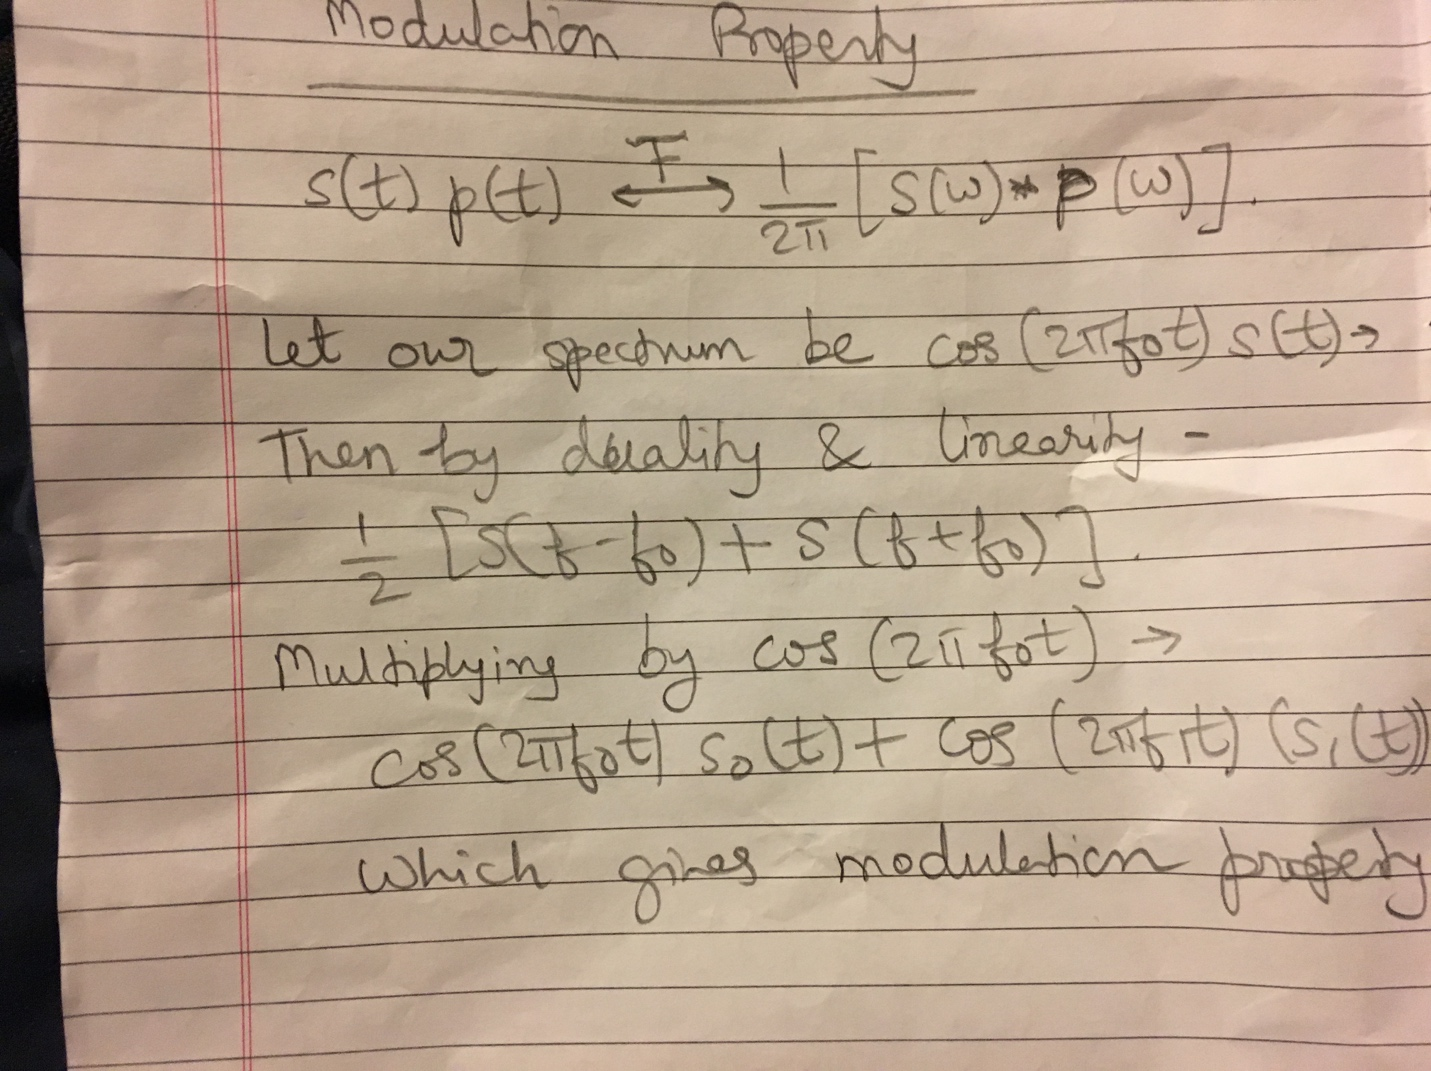 Modulation Property
s(t) p(t) F↔ 1/2π [S(ω) * P(ω)].
Let our spectrum be cos(2πf0t) s(t)→
Then by duality & linearity -
1/2 [S(f-f0) + S(f+f0)].
Multiplying by cos(2πf0t) →
cos(2πf0t) s0(t) + cos(2πf1t) (s1(t))
which gives modulation property